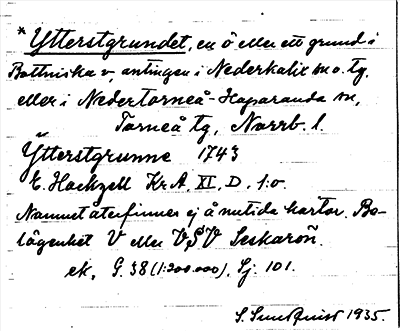 * Ytterstgrundet, en ö eller ett grund i
Bottniska v, antingen i Nederkalix sn o. tg.
eller i Nedertorneå-Haparanda sn,
Torneå tg, Norrb. l.
Ytterstgrunne 1743
E. Hackzell Kr.A. XI, D, 1:o.
Namnet återfinnes ej å nutida kartor. Be-
lägenhet V eller VSV Seskarön.
ek. G. 38 (1:200.000). Sj. 101.
S. Sundquist 1935.